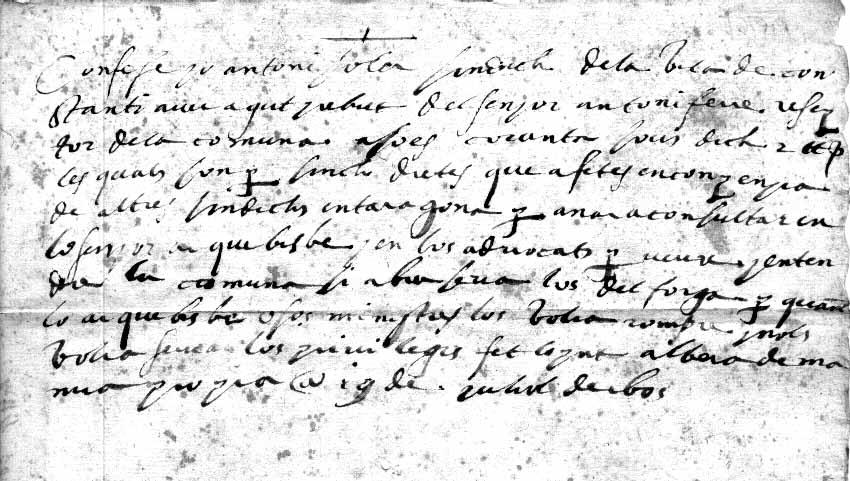 Confese jo antoni sola sindich dela vila de con
stanti aver agut y rebut del senyor antoni ferre rese
tor dela comuna asoes coranta sous dich 2 ₶
les quals son per sinch dietes que a fetes en conpenyia
de altres sindichs en taragona per anar a consultar en
lo senyor arquebisbe y en los advocats per veure y enten
dre la comuna si abraseria los del forga per quant
lo arquebisbe o sos ministres los volia rompre y nols
volia servar los privilegis fet lo pnt albera de ma
mia propia @ 19 de juliol de 1605